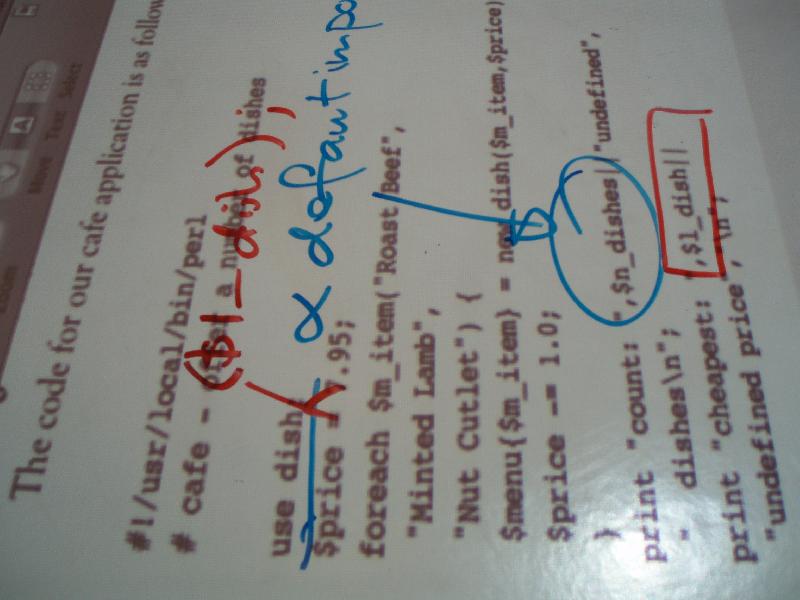 Zoom Move Text Select
The code for our cafe application is as follow
#!/usr/local/bin/perl
# cafe - offer a number of dishes
($l_dish);
use dish;
α default impo
$price = 7.95;
foreach $m_item("Roast Beef",
"Minted Lamb",
"Nut Cutlet") {
$menu{$m_item} = new dish($m_item,$price)
$price -= 1.0;
}
print "count: ",$n_dishes||"undefined",
" dishes\n";
print "cheapest: ",$l_dish||
"undefined price","\n";